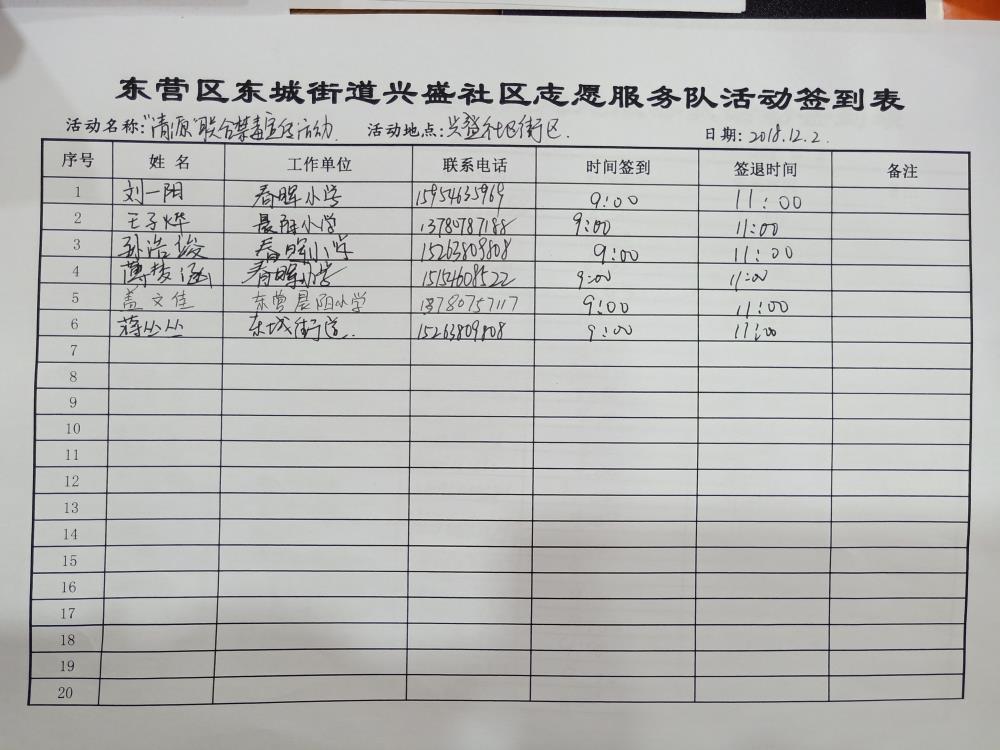 东营区东城街道兴盛社区志愿服务队活动签到表
活动名称:"清源"联合禁毒宣传活动 活动地点:兴盛社区街区. 日期: 2018.12.2.
序号 姓 名 工作单位 联系电话 时间签到 签退时间 备注
1 刘一阳 春晖小学 15954635969 9:00 11:00
2 王子烨 晨阳小学 13780787188 9:00 11:00
3 孙浩峻 春晖小学 15263809808 9:00 11:00
4 薄梦涵 春晖小学 15154608522 9:00 11:00
5 盖文佳 东营晨阳小学 13780757117 9:00 11:00
6 蒋丛丛 东城街道.. 15263809808 9:00 11:00
7
8
9
10
11
12
13
14
15
16
17
18
19
20